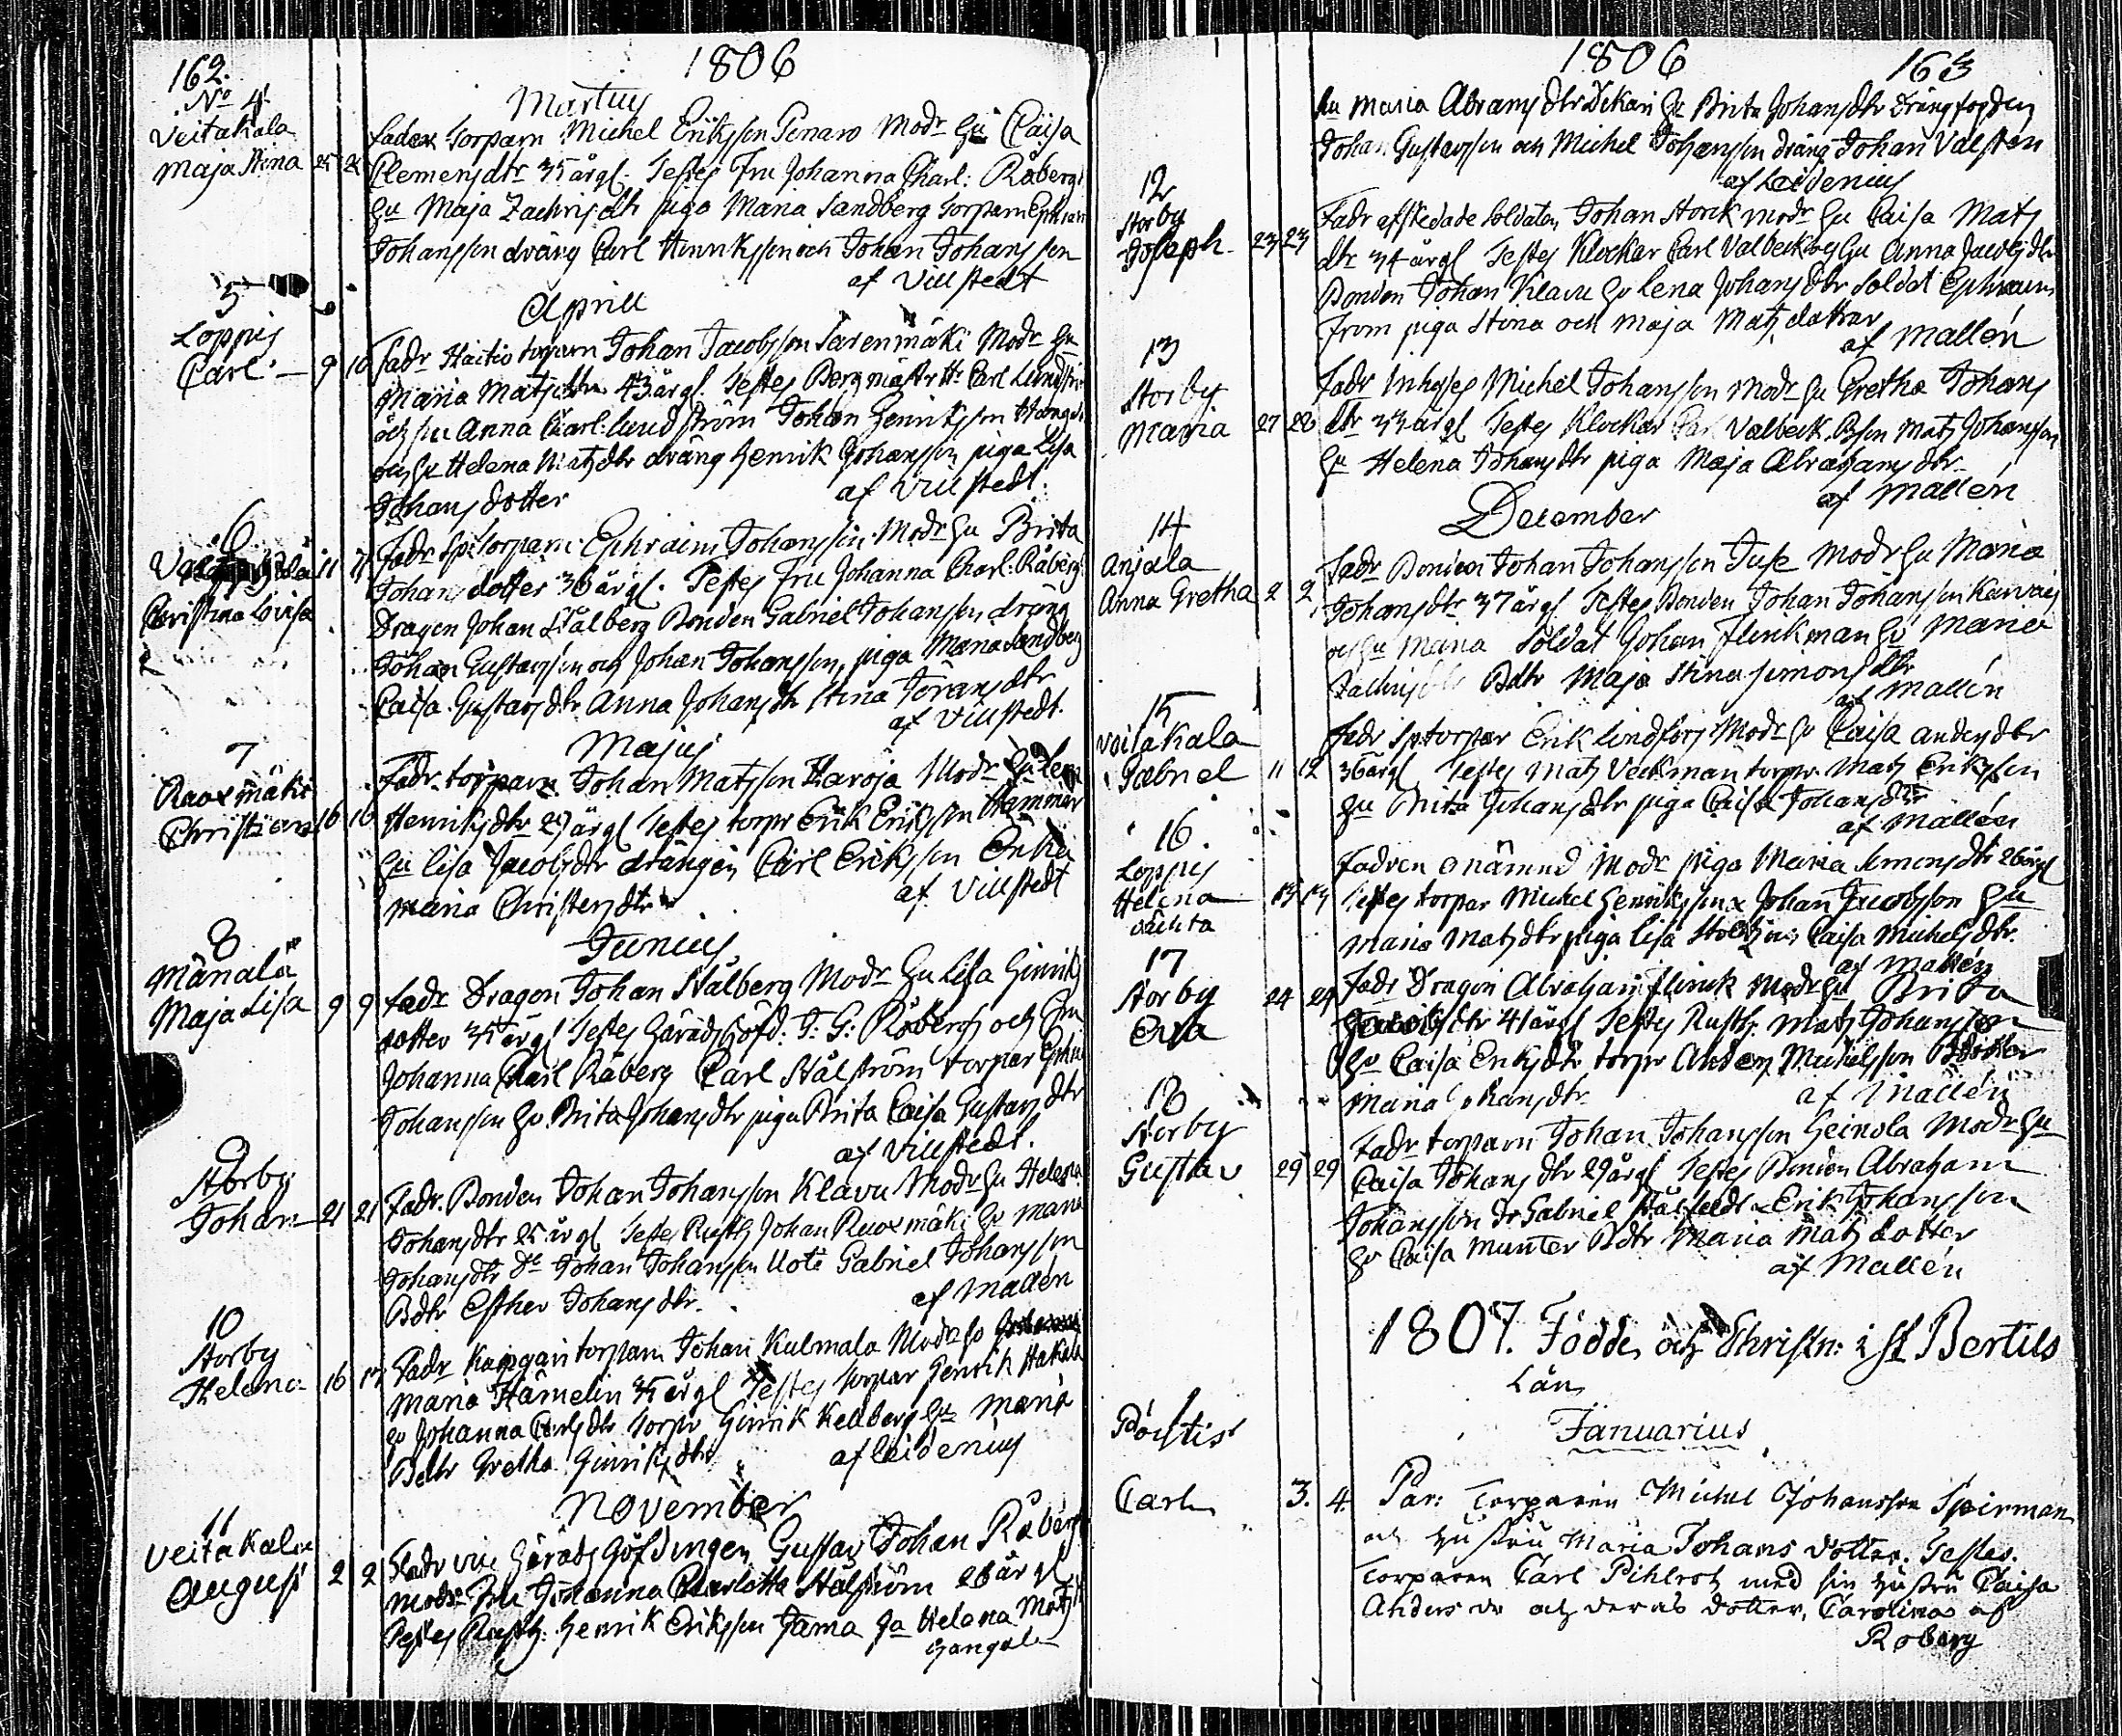 162.
1806
No 4
Martius
Veitakala
Maja Stina 25 25
Fader Torparn Michel Eriksson Penaro Modr Hu Caisa
Clemensdtr 35 årgl. Testes Fru Johanna Charl: Råberg
Hu Maja Zachrisdtr piga Maria Sandberg Torparn Ephraim
Johansson dräng Carl Henriksson och Johan Johansson
af Villstedt
April
5
Loppis
Carl 9 10
Fadr torparn Johan Jacobsson Sarenmäki Modr Hu
Maria Matsdtr 43 årgl. Testes Bergmästr Hr Carl Lundström
och Fru Anna Charl: Lundström Johan Henriksson
och Hu Helena Matsdtr dräng Henrik Johansson piga Lisa
Johansdotter
af Villstedt.
6
Christina Lovisa 11 11
Fadr Sp: Torparn Ephraim Johansson Modr Hu Brita
Johansdotter 36 årgl. Testes Fru Johanna Charl: Råberg
Dragon Johan Stålberg Bonden Gabriel Johansson dräng
Johan Gustavsson och Johan Johansson, piga Maria Sandberg
Caisa Gustavsdtr Anna Johansdtr Stina Göransdtr
af Villstedt.
Majus
7
Raaxmäki
Christian 16 16
Fadr torparn Johan Matsson Haroja Modr Hu Lena
Henriksdtr 29 årgl Testes torpr Erik Eriksson Hammar
Hu Lisa Jacobsdtr drängen Carl Eriksson Enkia
Maria Christersdtr
af Villstedt
Junius
8
Mänälä
Maja Lisa 9 9
Fadr Dragon Johan Stålberg Modr Hu Lisa Hinriks
dotter 35 årgl Testes Häradshöfd: J: G: Råbergh och Fru
Johanna Charl Råberg Carl Stålström torpar Ephr
Johansson Hu Brita Johansdtr piga Brita Caisa Gustavsdtr
af Villstedt.
9
Storby
Johan 21 21
Fadr. Bonden Johan Johansson Klavu Modr Hu Helena
Johansdtr 25 årgl Testes Rusth Johan Ruoxmäki Hu Maria
Johansdtr Dr Johan Johansson Uoti Gabriel Johansson
Bdtr Esther Johansdtr.
af Mallén
10
Storby
Helena 16 17
Fadr torparn Johan Kulmala Modr Hu
Maria Hämelin 35 årgl Testes torpar Henrik Hakala
Hu Johanna Carlsdtr torpr Hinrik Kellberg Hu Maria
Bdtr Gretha Hinriksdtr
af Leidenius
November
11
Veitakala
August 2 2
Fadr vice Häradshöfdingen Gustav Johan Råbergh
Modr Fru Johanna Charlotta Stålström 26 år gl
Testes Rusth. Henrik Eriksson Jama Hu Helena Mats

1806
163
Hu Maria Abramsdtr Dikari Hu Brita Johansdtr Drängfogden
Johan Gustavsson och Michel Johansson dräng Johan Valsten
af Leidenius
12
Storby
Joseph 23 23
Fadr afskedade Soldaten Johan Storck Modr Hu Caisa Mats
dtr 34 årgl Testes Klockar Carl Valbeck och Hu Anna Jacobsdtr
Bonden Johan Klavu Hu Lena Johansdtr Soldat Ephraim
From piga Stina och Maja Matsdottrar
af Mallén
13
Storby
Maria 27 28
Fadr Inhyses Michel Johansson Modr Hu Gretha Johans
dtr 33 årgl Testes Klockar Carl Valbeck Bson Mats Johansson
Hu Helena Johansdtr piga Maja Abrahamsdtr
af Mallén
December
14
Anjala
Anna Gretha 2 2
Fadr Bonden Johan Johansson Tuse Modr Hu Maria
Johansdtr 37 årgl Testes Bonden Johan Johansson
och Hu Maria Soldat Johan Flinkman Hu Maria
Bdtr Maja Stina Simonsdtr
af Mallén
15
Veitakala
Gabriel 11 12
Fadr Sptorpar Erik Lindfors Modr Hu Caisa Andersdtr
36 årgl Testes Mats Veckman torpr. Mats Eriksson
Hu Brita Johansdtr piga Caisa Johansdtr
af Mallén
16.
Loppis
Helena
oächta
Fadren onämnd Modr piga Maria Simonsdtr 26 årgl
Testes torpar Michel Henriksson Johan Jacobsson Hu
Maria Matsdtr piga Lisa Caisa Michelsdtr.
af Mallén
17
Storby
Eva 24 24
Fadr Dragon Abraham Flinck Modr Hu Brita
Jacobsdtr 41 årgl Testes Rusth. Mats Johansson
Hu Caisa Eriksdtr torpr Anders Michelsson Bdotter
Maria Johansdtr.
af Mallén
18
Storby
Gustav 29 29
Fadr torparn Johan Johansson Heinola Modr Hu
Caisa Johansdtr 29 årgl Testes Bonden Abraham
Johansson Dr Gabriel Stålfeldt Erik Johansson
Hu Caisa Munter Bdtr Maria Matsdotter
af Mallén
1807. Födde och Christn: i St Bertils
Län
Januarius
1
Pöytis
Carl 3. 4.
Par: Torparen Michel Johansson Spirman
och hustru Maria Johans dotter. Testes.
Torparen Carl Pihlrot med sin hustru Caisa
Anders dr och deras dotter, Carolina af
Roberg